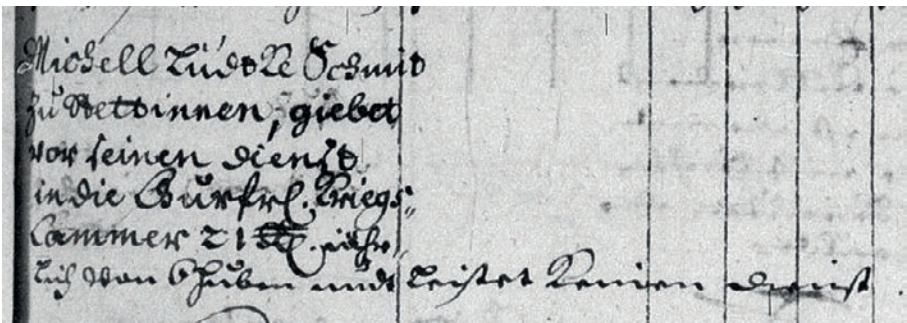 Michell Lüdtke Schmit
zu Stettinnen, giebet
vor seinen dienst
in die Churfrl. Kriegs¬
Cammer 21 jähr¬
lich von 6 huben undt leistet keinen dienst.